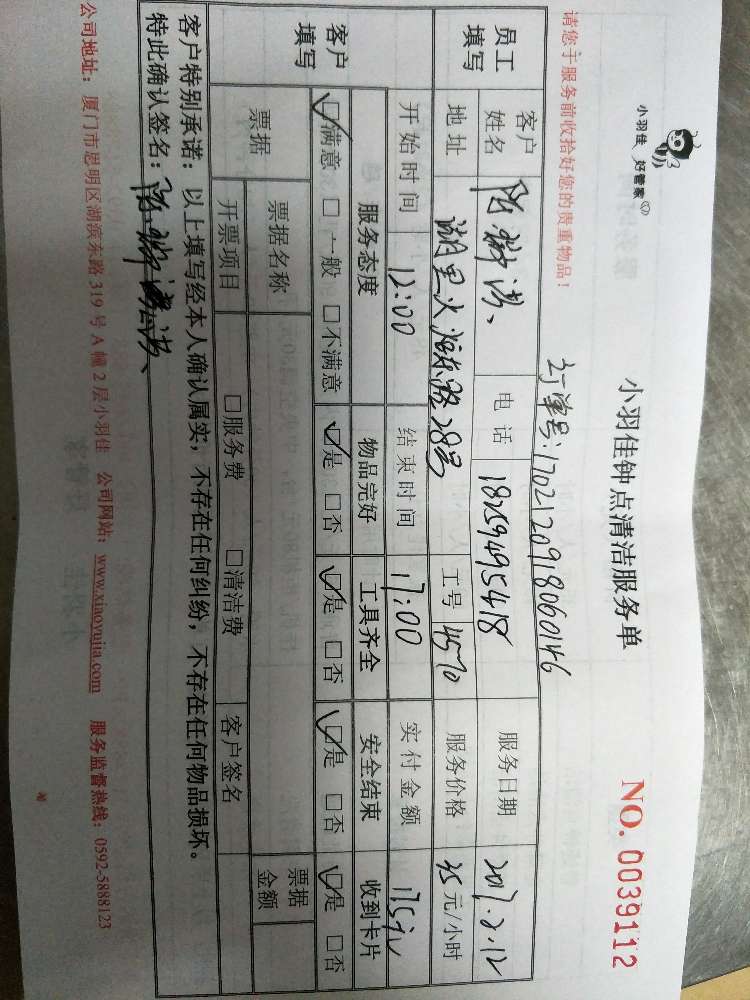 小羽佳 好管家
小羽佳钟点清洁服务单
NO. 0039112
请您于服务前收拾好您的贵重物品!
订单号:1702120918060146
员工填写
客户姓名 电话 18259495418 服务日期 2017.2.12
地址 湖里火炬东路28号 工号 4570 服务价格 35元/小时
开始时间 12:00 结束时间 17:00 实付金额 175元
客户填写
服务态度 物品完好 工具齐全 安全结束 收到卡片
☑满意 □一般 □不满意 ☑是 □否 ☑是 □否 ☑是 □否 ☑是 □否
票据 票据名称 票据金额
开票项目 □服务费 □清洁费 客户签名
客户特别承诺:以上填写经本人确认属实,不存在任何纠纷,不存在任何物品损坏。
特此确认签名:
公司地址:厦门市思明区湖滨东路319号A幢2层小羽佳 公司网站:www.xiaoyujia.com 服务监督热线:0592-5888123